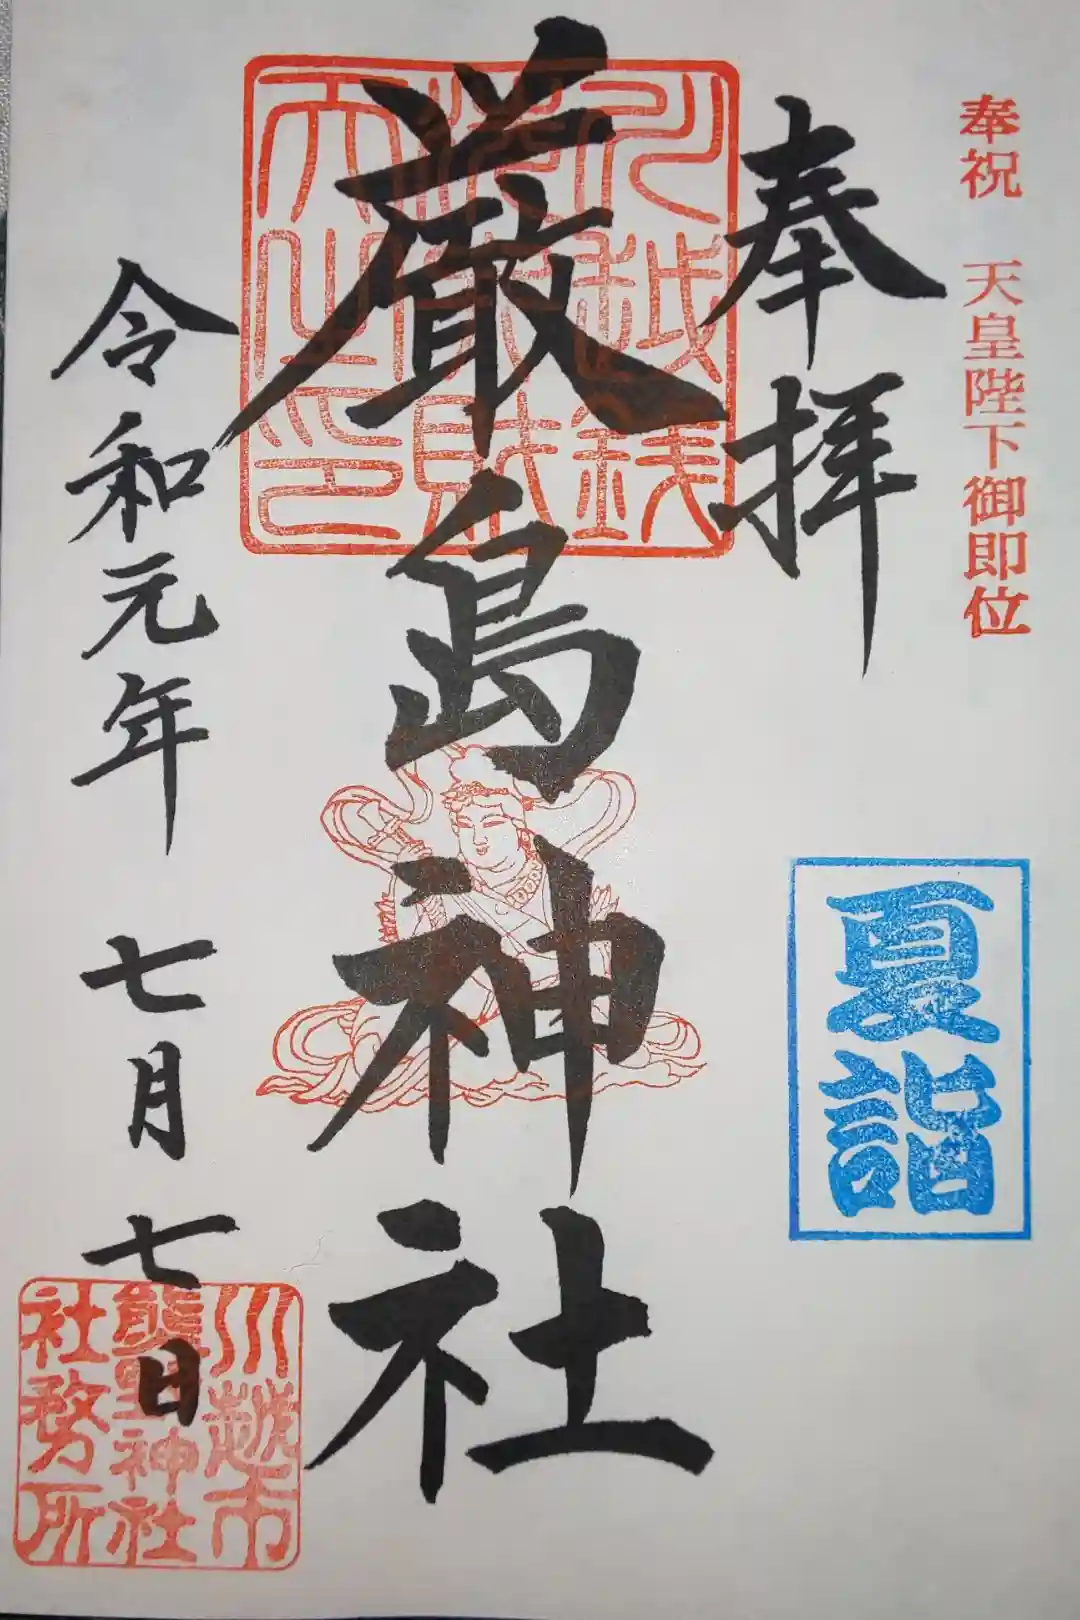 奉祝　天皇陛下御即位
奉拝
夏詣
厳島神社
令和元年　七月　七日
川越市
熊野神社
社務所